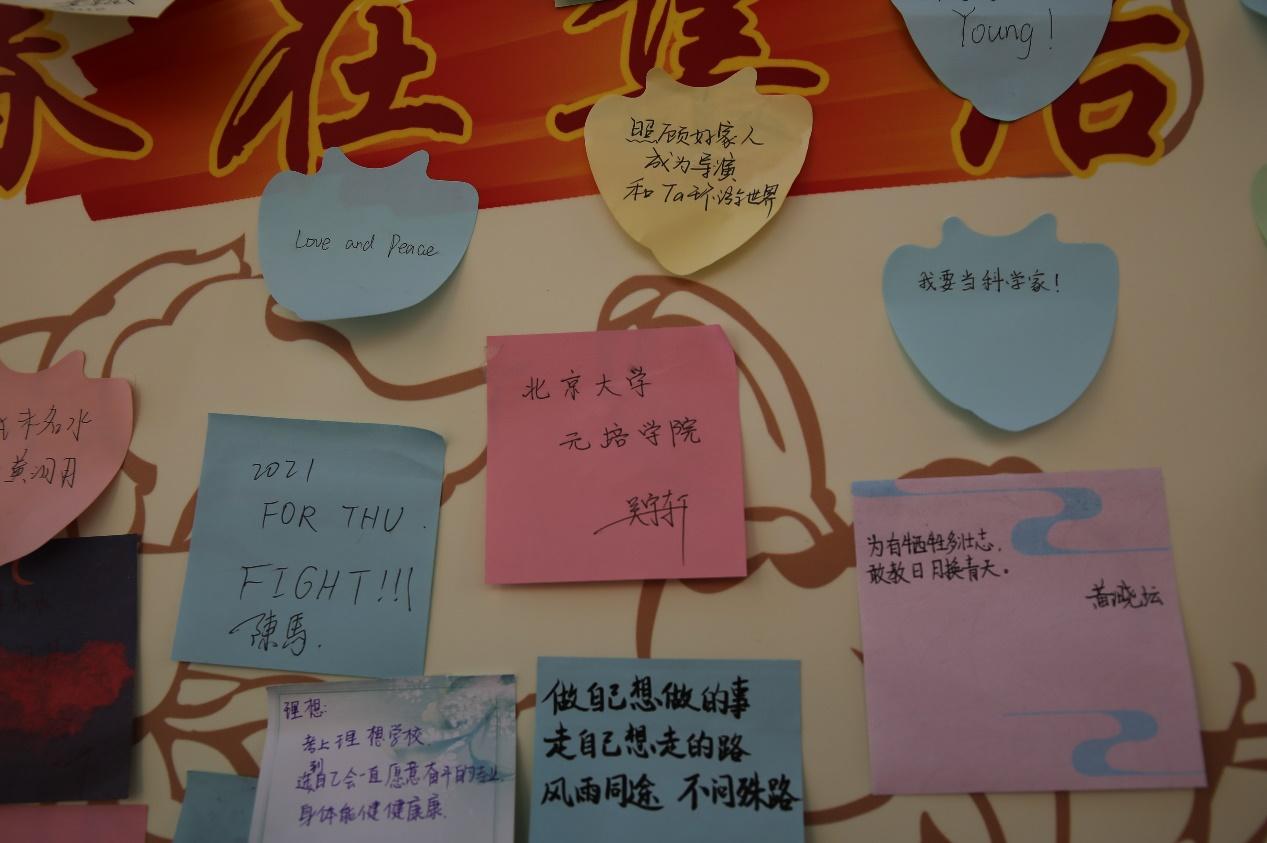 社
Young!
照顾好家人
成为导演
和Ta环游世界
Love and Peace
我要当科学家!
北京大学
元培学院
吴宇轩
未名水
2021
FOR THU.
FIGHT!!!
陳馬.
为有牺牲多壮志,
敢教日月换青天。
黄晓坛
理想:
考上理想学校
选到自己会一直愿意奋斗的专业
身体能健健康康.
做自己想做的事
走自己想走的路
风雨同途 不问殊路